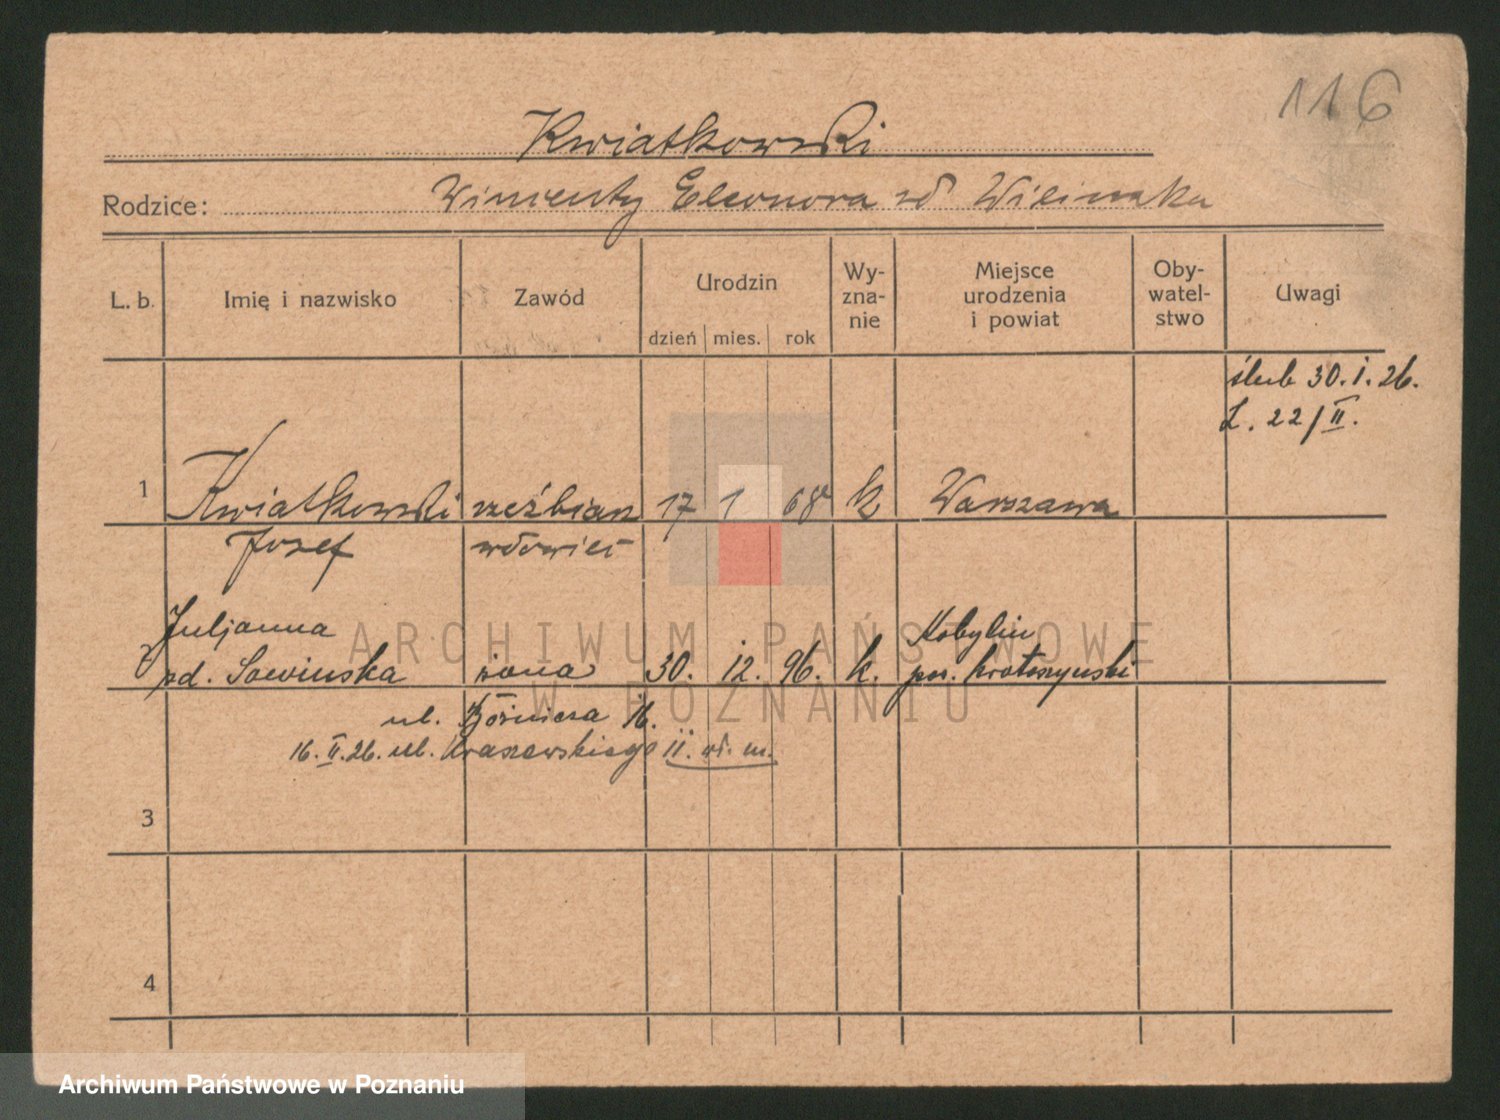 116
Kwiatkowski
Rodzice: Wincenty Eleonora zd
L. b. Imię i nazwisko Zawód Urodzin Wy-zna-nie Miejsce urodzenia i powiat Oby-watel-stwo Uwagi
dzień mies. rok
ślub 30.I.26.
L. 22/II.
1 Kwiatkowski rzeźbiarz 17 1 68 k Warszawa
Jozef wdowiec
Juljanna Kobylin
zd. Sowinska żona 30. 12. 96. k. pow. krotoszynski
ul. 16.
16.II.26. ul. Kraszewskiego 11.
3
4
ARCHIWUM PAŃSTWOWE
W POZNANIU
Archiwum Państwowe w Poznaniu